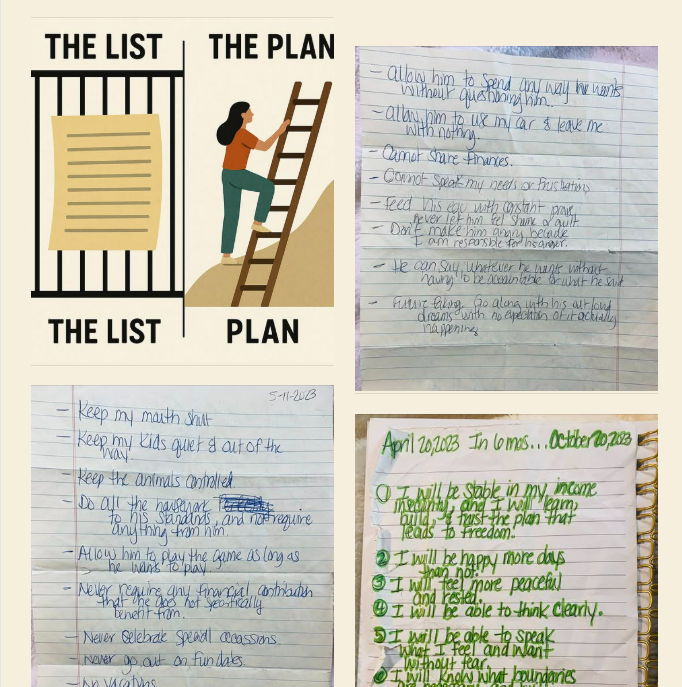 THE LIST
THE PLAN
THE LIST
PLAN
- Allow him to spend any way he wants
without questioning him.
- Allow him to use my car & leave me
with nothing.
- Cannot share finances.
- Cannot speak my needs or frustrations
- Feed his ego with constant praise
never let him feel shame or guilt
- Don't make him angry because
I am responsible for his anger.
- He can say whatever he wants without
having to be accountable for what he said
- Future faking. Go along with his out loud
dreams with no expectation of it actually
happening
5-11-2023
- Keep my mouth shut
- Keep my kids quiet & out of the
way.
- Keep the animals controlled
- Do all the housework
to his standards, and not require
anything from him.
- Allow him to play the game as long as
he wants to play
- Never require any financial contribution
that he does not specifically
benefit from.
- Never celebrate special occassions
- Never go out on fun dates.
- No vacations
April 20, 2023 In 6 mos... October 20, 2023
① I will be stable in my income
insecurity, and I will learn,
build, & the plan that
leads to freedom.
② I will be happy more days
than not.
③ I will feel more peaceful
and rested.
④ I will be able to think clearly.
⑤ I will be able to speak
what I feel and want
without fear.
⑥ I will know what boundaries
are and